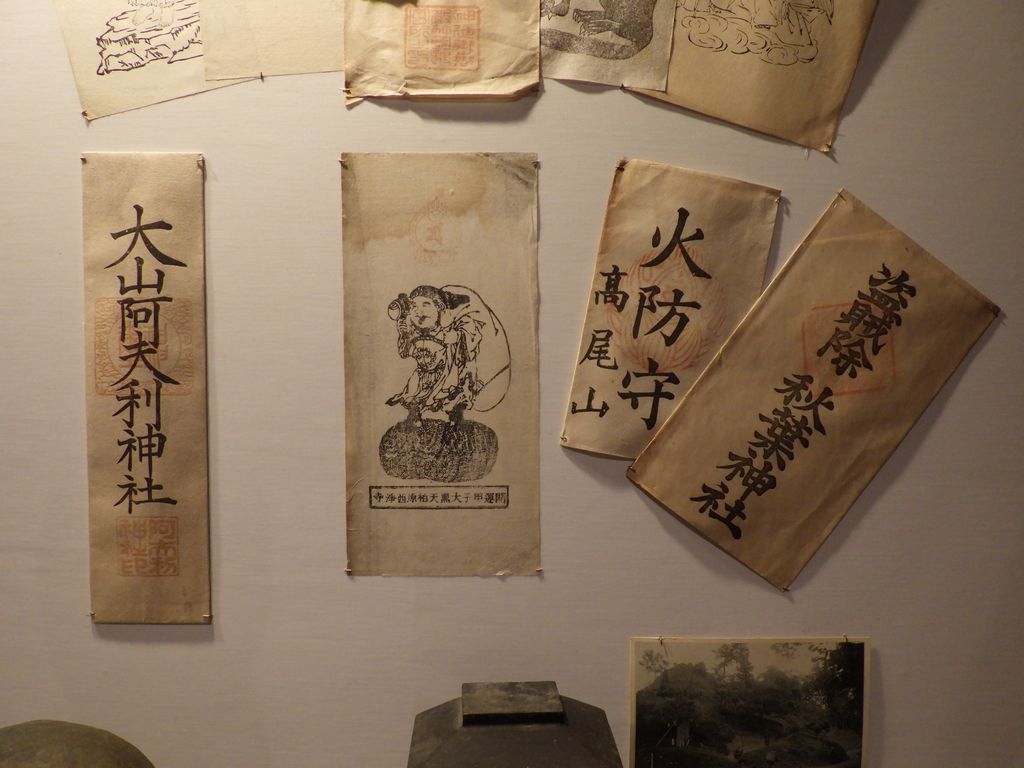 大山阿夫利神社
阿夫利
神社印
開運甲子大黒天柏原西浄寺
火防守
高尾山
盗賊除
秋葉神社